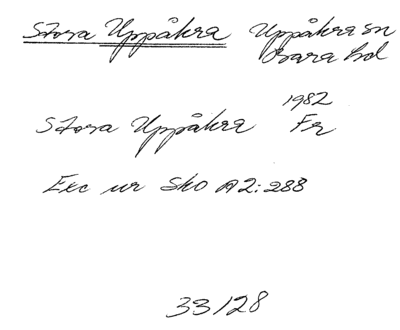 Stora Uppåkra Uppåkra sn
Bara hd
1982
Stora Uppåkra Fr
Exc ur Sko A2:288
33128